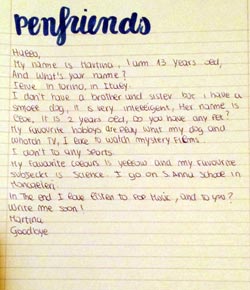 Penfriends
Hello,
My name is Martina, I am 13 years old,
And what's your name?
I live in Torino, in Italy.
I don't have a brother and sister but i have a
smoee dog, It is very intelligent, Her name is
Cloe, It is 2 years old, Do you have any pet?
My favourite hobbys are play what my dog and
whatch TV, I like to watch mystery films
I don't to any sports.
My favourite colours is yellow and my favourite
subsect is Science. I go on S.Anna School in
Moncalieri.
In the end I love listen to Pop Music, and to you?
Write me soon!
Martina
Goodbye